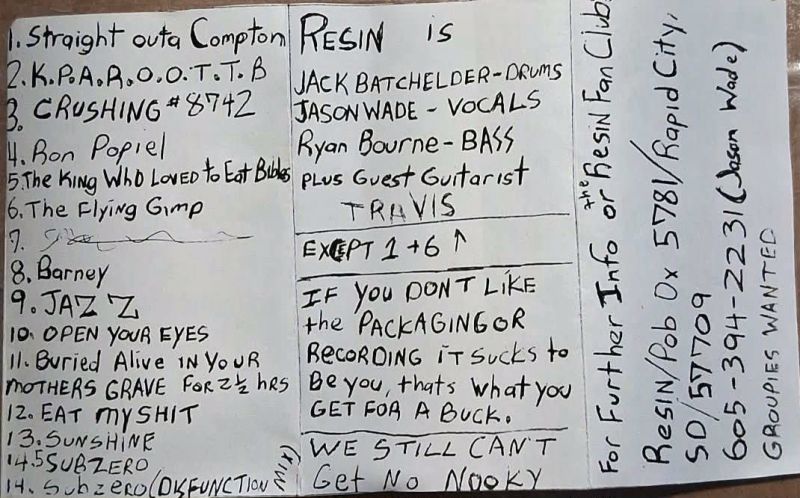 1. Straight outa Compton
2. K.P.A.R.O.O.T.T.B
3. CRUSHING #8742
4. Ron Popiel
5. The King Who Loved to Eat Bibles
6. The Flying Gimp
7.
8. Barney
9. JAZZ
10. OPEN YOUR EYES
11. Buried Alive IN YOUR
MOTHERS GRAVE FOR 2½ HRS
12. EAT MY SHIT
13. SUNSHINE
14.5 SUBZERO
14. Subzero (DISFUNCTION MIX)
RESIN IS
JACK BATCHELDER-DRUMS
JASON WADE - VOCALS
Ryan Bourne - BASS
PLUS Guest Guitarist
TRAVIS
EXCEPT 1+6 ↑
IF YOU DONT LIKE
the PACKAGING OR
RECORDING IT SUCKS to
Be you, thats what you
GET FOR A BUCK.
WE STILL CAN'T
Get No NOOKY
For Further Info or the Resin Fan Club:
Resin/Pob Ox 5781/Rapid City,
SD/57709
605-394-2231 (Jason Wade)
GROUPIES WANTED